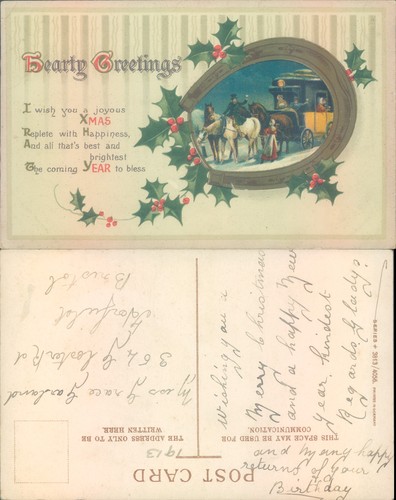 Hearty Greetings
I wish you a joyous
XMAS
Replete with Happiness,
And all that's best and
brightest
The coming YEAR to bless
POST CARD
THIS SPACE MAY BE USED FOR
COMMUNICATION.
THE ADDRESS ONLY TO BE
WRITTEN HERE.
Wishing you a
Merry Christmas
and a happy New
Year. Kindest
Regards Gladys.
and Many happy
returns of your
Birthday
1913
Miss Grace Garland
364 Gloster Rd
Horfield
Bristol